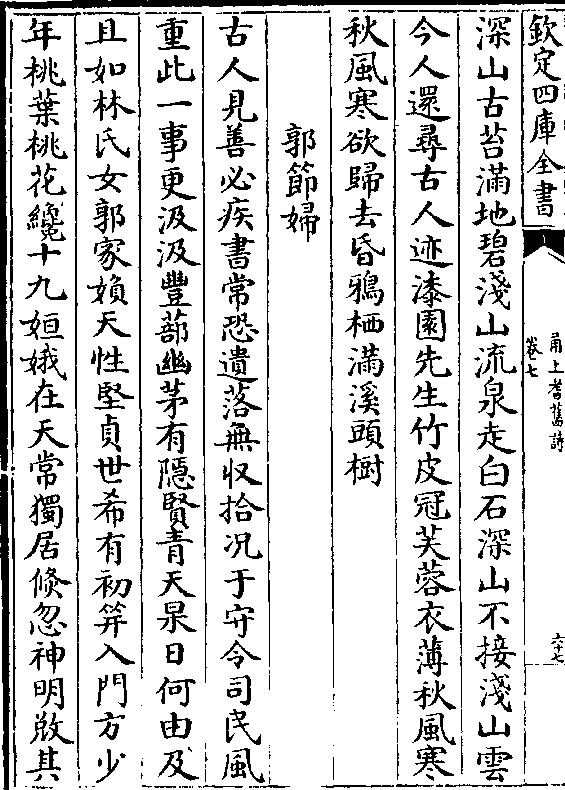 欽定四庫全書
甬上耆舊詩
卷七
六十七
深山古苔滿地碧淺山流泉走白石深山不接淺山雲
今人還尋古人迹漆園先生竹皮冠芙蓉衣薄秋風寒
秋風寒欲歸去昏鴉栖滿溪頭樹
郭節婦
古人見善必疾書常恐遺落無収拾况于守令司民風
重此一事更汲汲豐蔀幽茅有隱賢青天杲日何由及
且如林氏女郭家媍天性堅貞世希有初筓入門方少
年桃葉桃花纔十九姮娥在天常獨居倏忽神明啟其